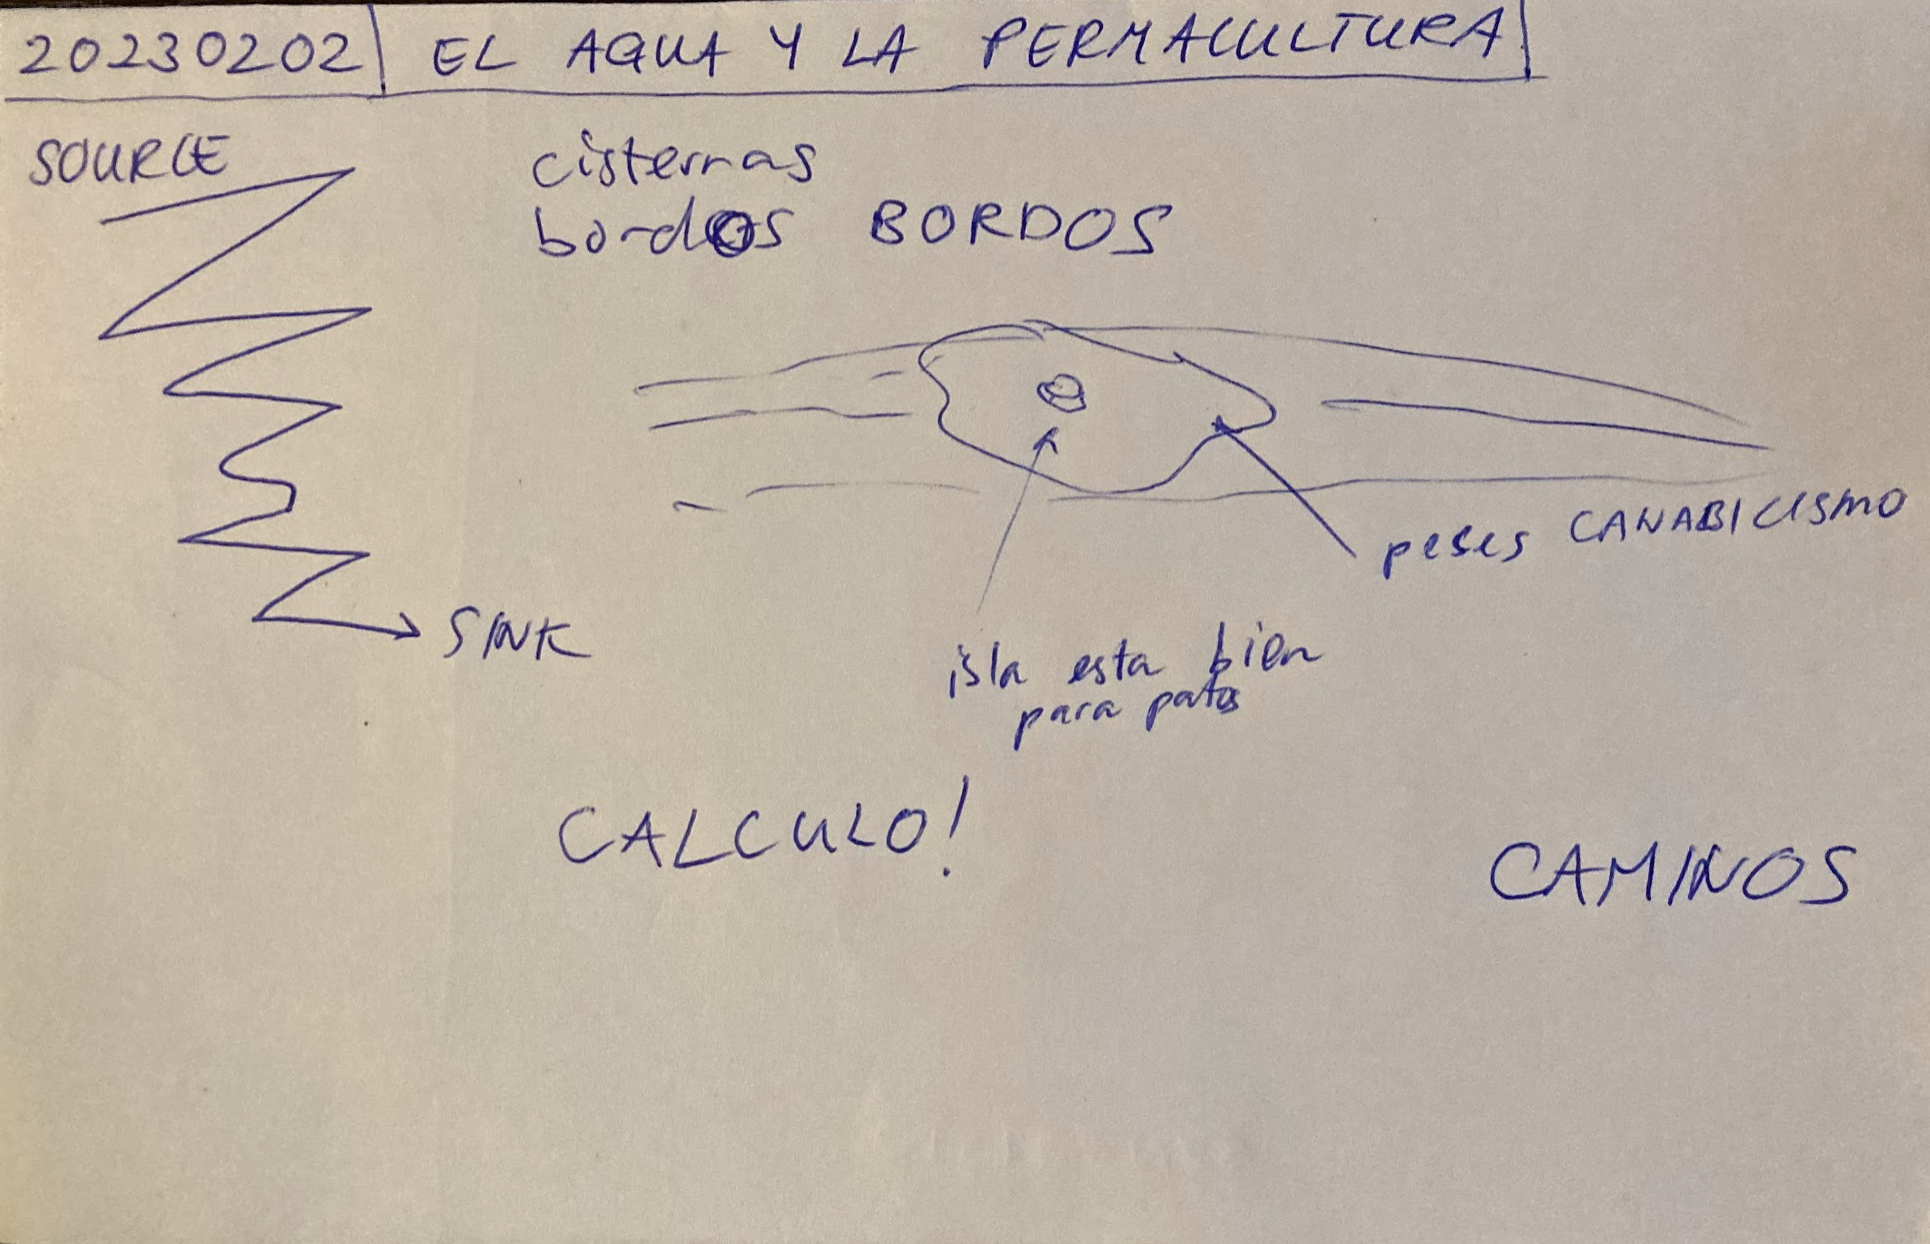 20230202 EL AGUA Y LA PERMACULTURA
SOURCE
cisternas
bordos BORDOS
peses CANABICISMO
SINK
isla esta bien
para patos
CALCULO!
CAMINOS